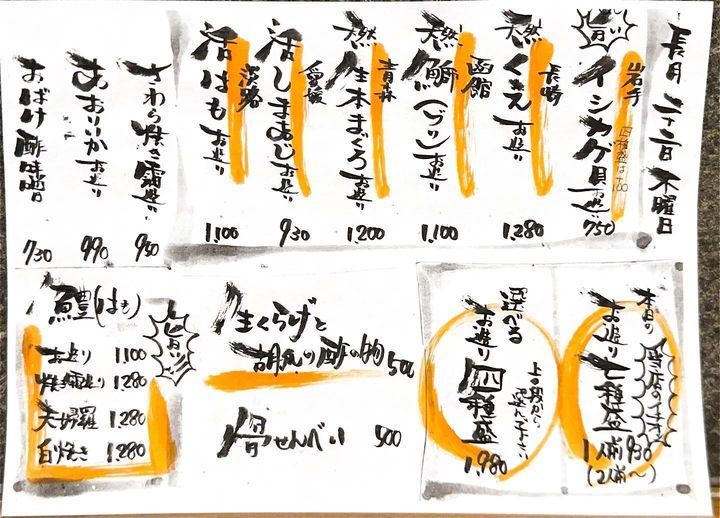 長月 二十二日 木曜日
旨い
岩手
イシカゲ貝お造り 750
四種盛は+100
長崎
天然くえお造り 1,280
函館
天然鰤(ブリ)お造り 1,100
青森
天然生本まぐろお造り 1,200
愛媛
活しまあじお造り 930
淡路
活はもお造り 1,100
さわら焼き霜造り 950
あおりいかお造り 990
おばけ酢味噌 730
本日の
当店のイチオシ
お造り七種盛
1人前930
(2人前〜)
選べる
お造り四種盛
上の段から
選んで下さい
1,980
生くらげと
胡瓜の酢の物 500
骨せんべい 500
鱧(はも)
旨い!!
お造り 1,100
焼霜造り 1,280
天婦羅 1,280
白焼き 1,280